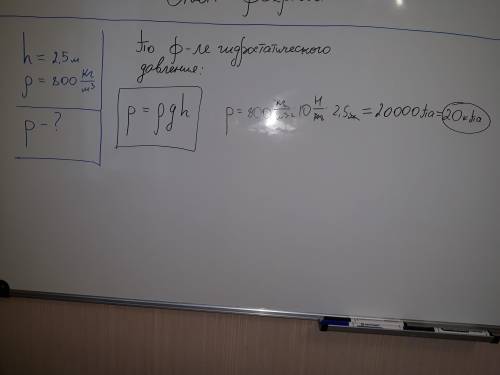 h = 2,5 м
ρ = 800 кг/м³
p - ?
По ф-ле гидростатического
давления:
p = ρgh
p = 800 кг/м³ · 10 Н/кг · 2,5 м = 20000 Па = 20 кПа